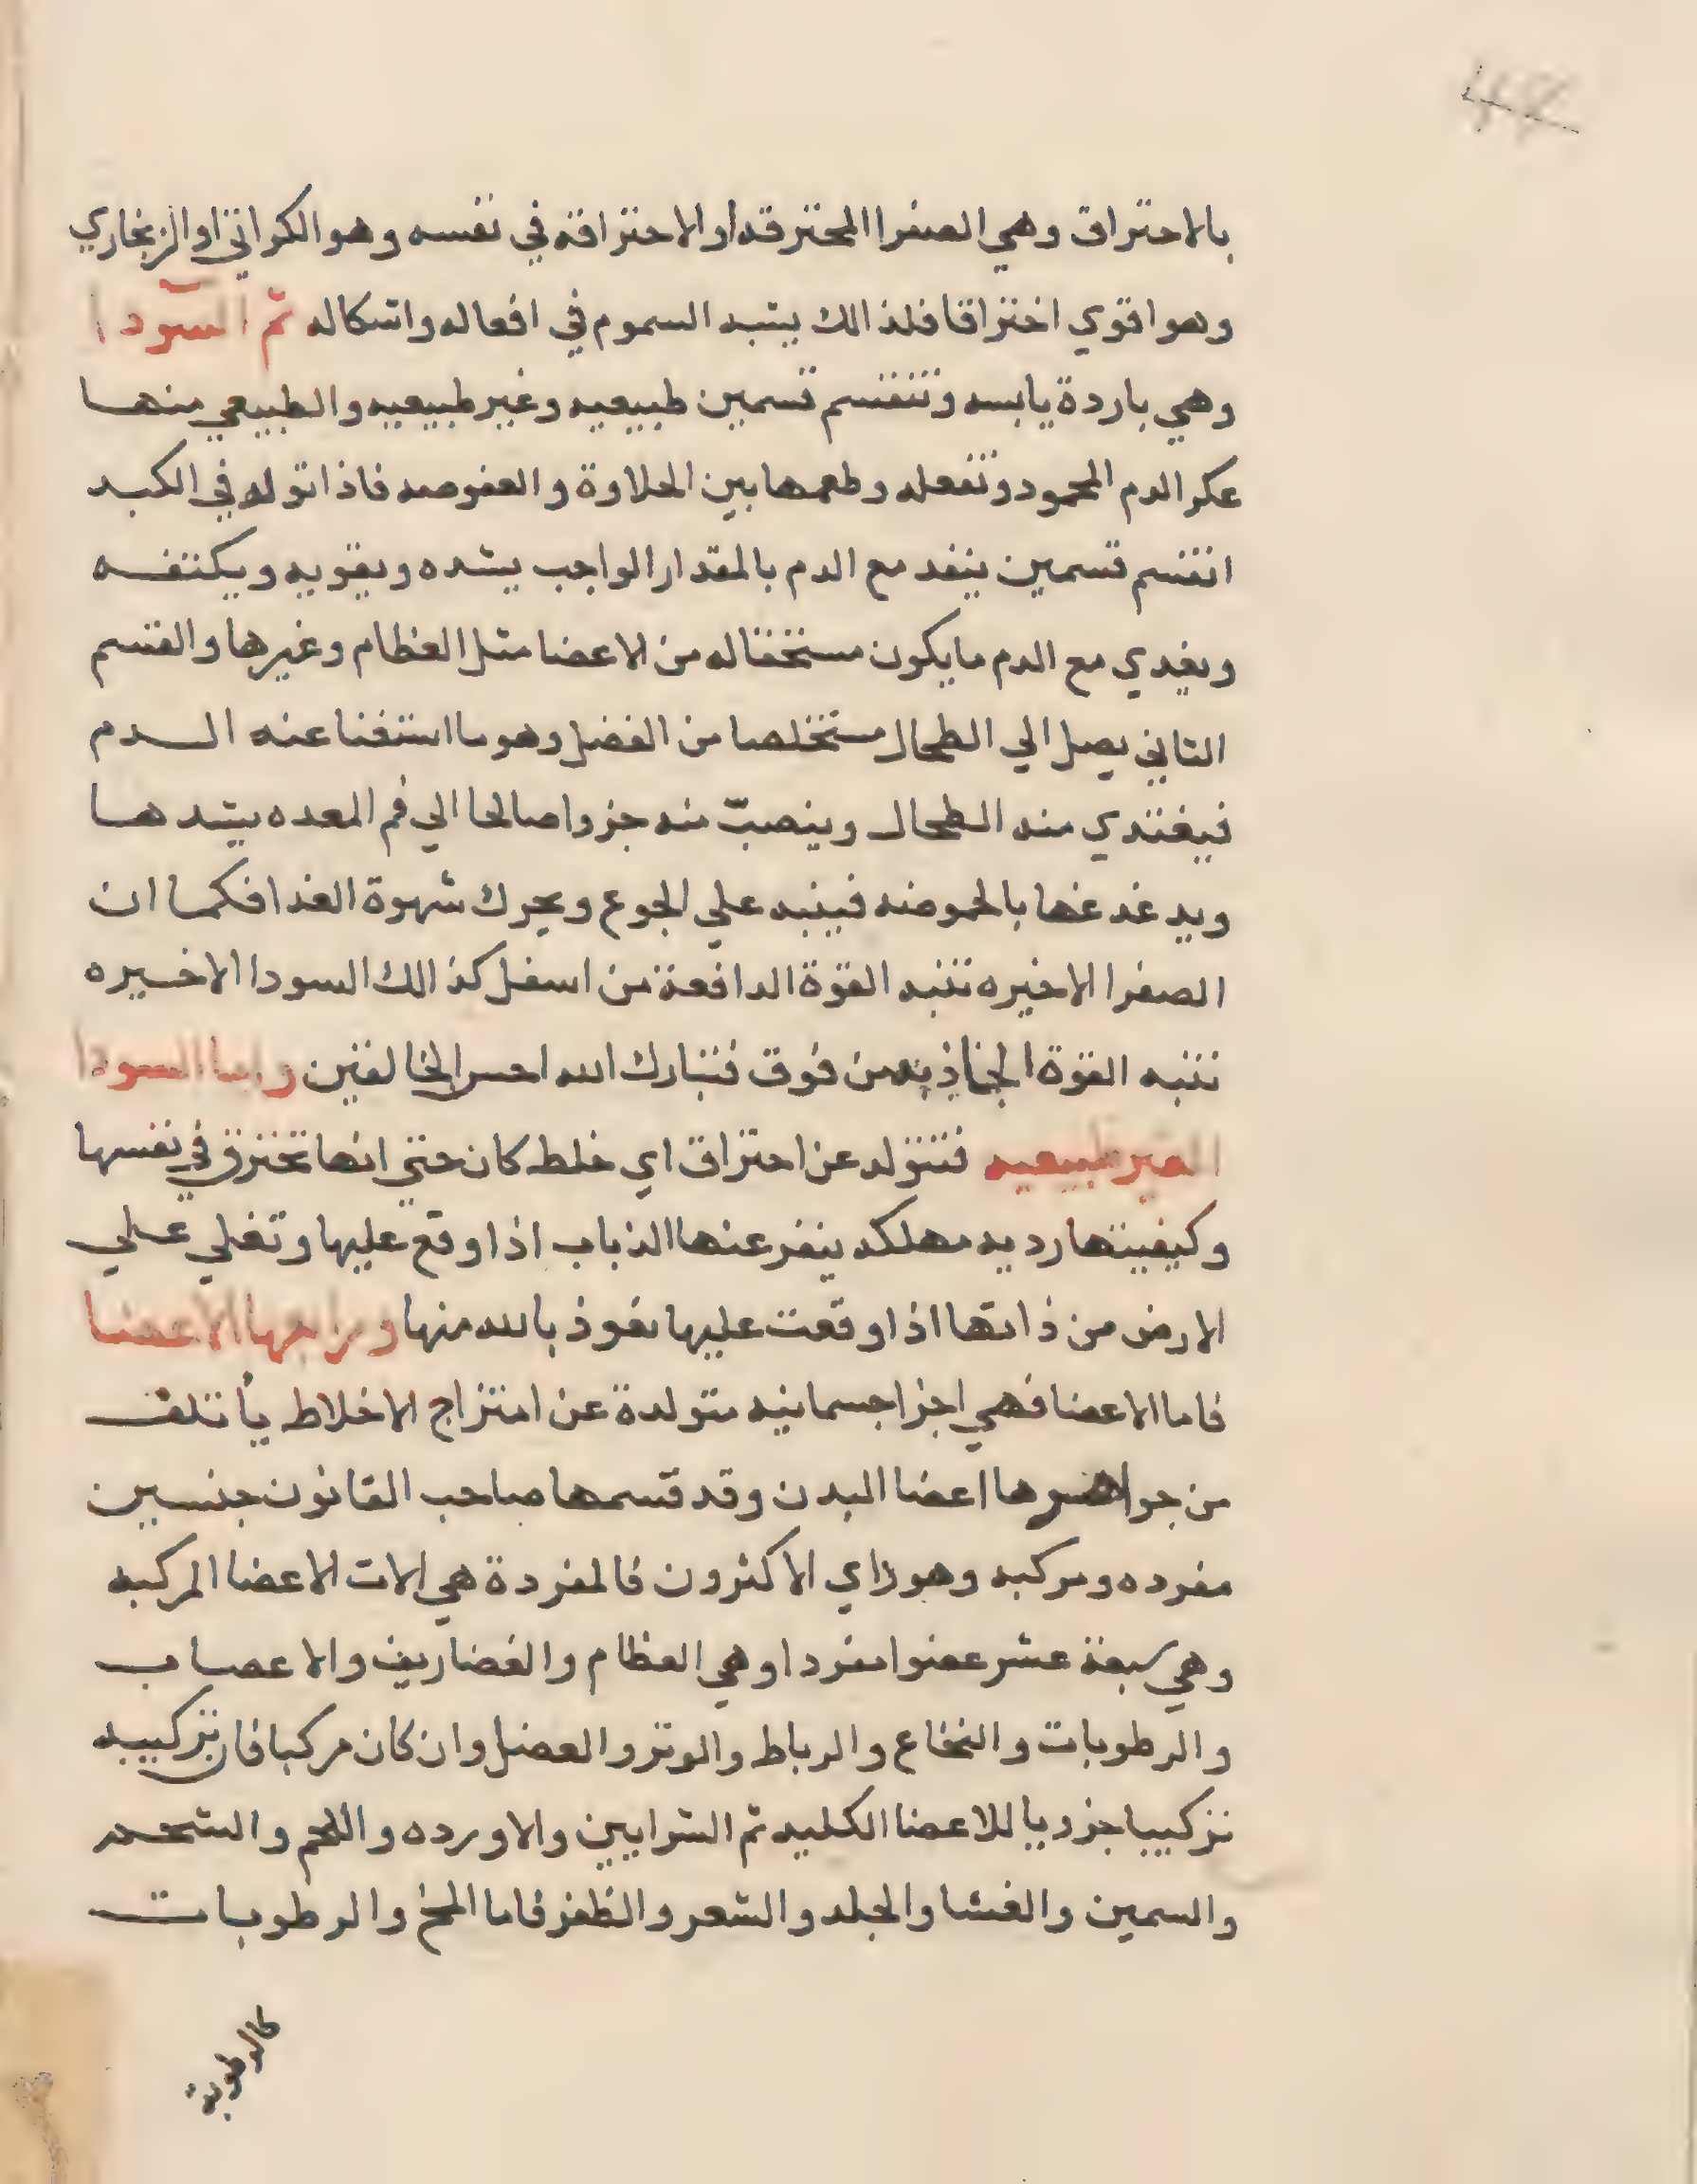 بالاحتراق وهي الصفرا المحترقه او الاحتراقه في نفسه وهو الكراثي او الزنجاري
وهو اقوي احتراقا فلذالك يشبه السموم في افعاله واشكاله ثم السودا
وهي باردة يابسه وتنقسم قسمين طبيعيه وغير طبيعيه والطبيعي منها
عكر الدم المحمود وتفعله وطعمها بين الحلاوة والعفوصه فاذا تولد في الكبد
انقسم قسمين ينفد مع الدم بالمقدار الواجب يشده ويقويه ويكنفه
ويغدي مع الدم ما يكون مستحقا له من الاعضا مثل العظام وغيرها والقسم
الثاني يصل الي الطحال مستخلصا من الفضل وهو ما استغنا عنه الدم
فيغتدي منه الطحال وينصبّ منه جزوا صالحا الي فم المعده يشدها
ويدغدغها بالحموضه فينبه علي الجوع ويحرك شهوة الغدا فكما ان
الصفرا الاخيره تنبه القوة الدافعة من اسفل كذالك السودا الاخيره
تنبه القوة الجاذبه من فوق فتبارك الله احسن الخالقين واما السودا
الغير طبيعيه فتتولد عن احتراق اي خلط كان حتي انها تحترق في نفسها
وكيفيتها رديه مهلكه ينفر عنها الذباب اذا وقع عليها وتغلي علي
الارض من ذاتها اذا وقعت عليها نعوذ بالله منها ورابعها الاعضا
فاما الاعضا فهي اجزا جسمانيه متولدة عن امتزاج الاخلاط يأتلف
من جواهرها اعضا البدن وقد قسمها صاحب القانون جنسين
مفرده ومركبه وهو راي الاكثرون فالمفردة هي الات الاعضا المركبه
وهي سبعة عشر عضوا مفردا وهي العظام والغضاريف والاعصاب
والرطوبات والنخاع والرباط والوتر والعضل وان كان مركبا فان تركيبه
تركيبا جزويا للاعضا الكليه ثم الشرايين والاورده واللحم والشحم
والسمين والغشا والجلد والشعر والظفر فاما المخ والرطوبات
كالرطوبة